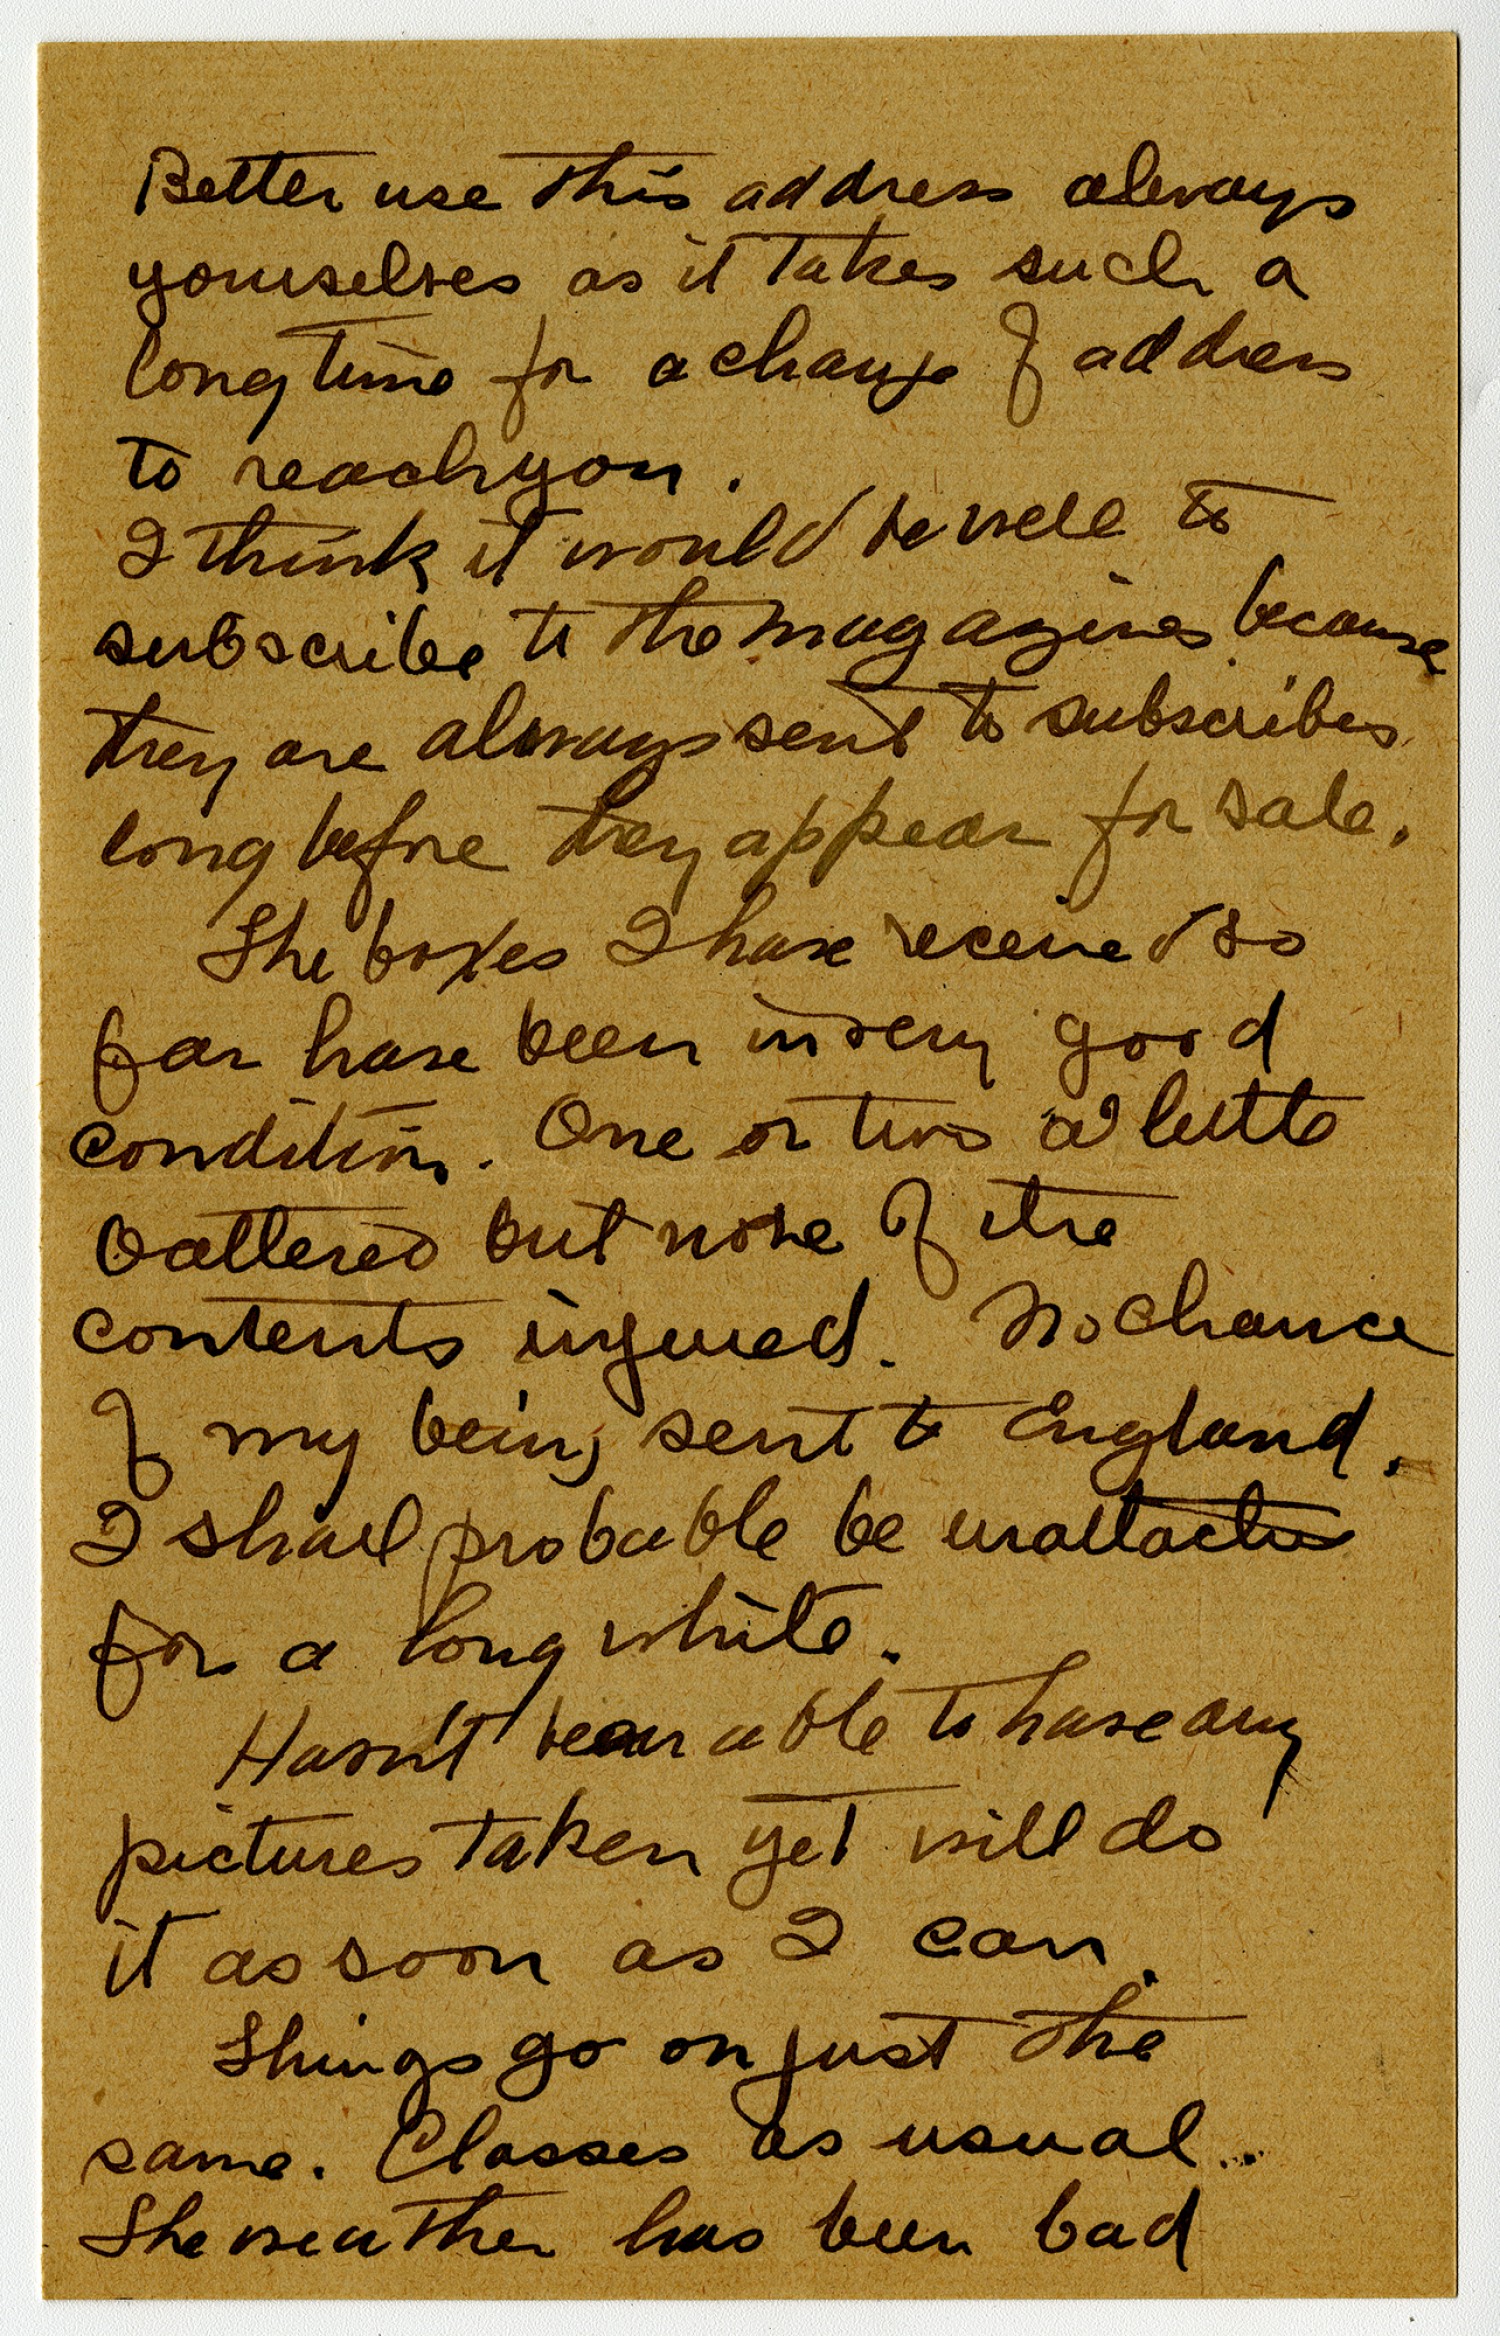 Better use this address always
yourselves as it takes such a
long time for a change of address
to reach you.
I think it would be well to
subscribe to the magazines because
they are always sent to subscribers
long before they appear for sale.
The boxes I have received so
far have been in very good
condition. One or two a little
battered but none of the
contents injured. No chance
of my being sent to England.
I shall probable be unattached
for a long while.
Hasn't been able to have any
pictures taken yet will do
it as soon as I can.
Things go on just the
same. Classes as usual.
The weather has been bad